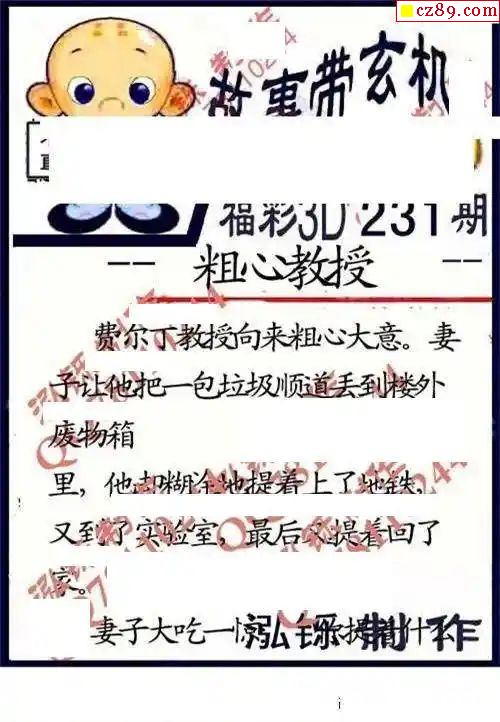 cz89.com
故事带玄机
福彩3D 231期
-- 粗心教授 --
费尔丁教授向来粗心大意。妻
子让他把一包垃圾顺道丢到楼外
废物箱
里，他却糊涂地提着上了地铁，
又到了实验室，最后又提着回了
家。
妻子大吃一惊
提着什么
泓铄制作
i